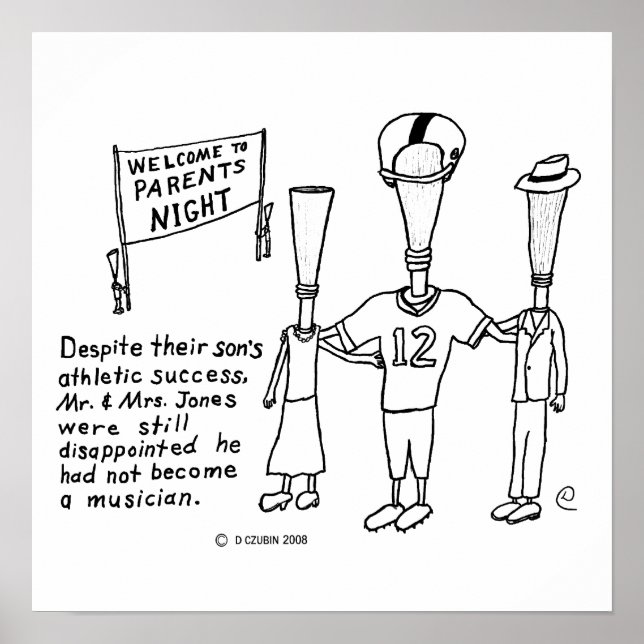 WELCOME TO
PARENTS
NIGHT
12
Despite their son's
athletic success,
Mr. & Mrs. Jones
were still
disappointed he
had not become
a musician.
© D CZUBIN 2008